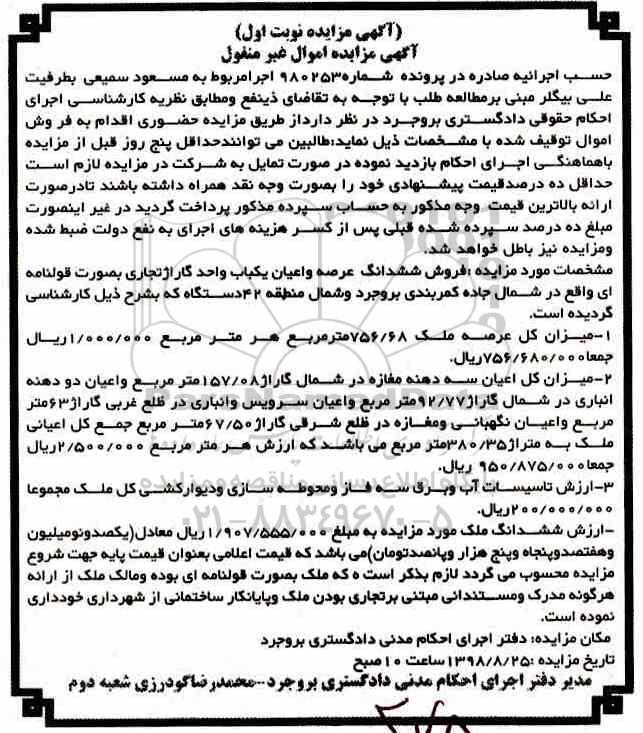 (آگهی مزایده نوبت اول)
آگهی مزایده اموال غیر منقول
حسب اجرائیه صادره در پرونده شماره۹۸۰۲۵۳ اجرامربوط به مسعود سمیعی بطرفیت
علی بیگلر مبنی برمطالعه طلب با توجه به تقاضای ذینفع ومطابق نظریه کارشناسی اجرای
احکام حقوقی دادگستری بروجرد در نظر دارداز طریق مزایده حضوری اقدام به فر وش
اموال توقیف شده با مشخصات ذیل نماید:طالبین می توانندحداقل پنج روز قبل از مزایده
باهماهنگی اجرای احکام بازدید نموده در صورت تمایل به شرکت در مزایده لازم است
حداقل ده درصدقیمت پیشنهادی خود را بصورت وجه نقد همراه داشته باشند تادرصورت
ارائه بالاترین قیمت وجه مذکور به حساب سپرده مذکور پرداخت گردید در غیر اینصورت
مبلغ ده درصد سپرده شده قبلی پس از کسر هزینه های اجرای به نفع دولت ضبط شده
ومزایده نیز باطل خواهد شد.
مشخصات مورد مزایده :فروش ششدانگ عرصه واعیان یکباب واحد گاراژتجاری بصورت قولنامه
ای واقع در شمال جاده کمربندی بروجرد وشمال منطقه ۴۲دستگاه که بشرح ذیل کارشناسی
گردیده است.
۱-میزان کل عرصه ملک ۷۵۶/۶۸مترمربع هر متر مربع ۱/۰۰۰/۰۰۰ریال
جمعا۷۵۶/۶۸۰/۰۰۰ریال.
۲-میزان کل اعیان سه دهنه مغازه در شمال گاراژ۱۵۷/۰۸متر مربع واعیان دو دهنه
انباری در شمال گاراژ۹۲/۷۷متر مربع واعیان سرویس وانباری در ظلع غربی گاراژ۶۳متر
مربع واعیان نگهبانی ومغازه در ظلع شرقی گاراژ۶۷/۵۰متر مربع جمع کل اعیانی
ملک به متراژ۳۸۰/۳۵متر مربع می باشد که ارزش هر متر مربع ۲/۵۰۰/۰۰۰ریال
جمعا۹۵۰/۸۷۵/۰۰۰ ریال.
۳-ارزش تاسیسات آب وبرق سه فاز ومحوطه سازی ودیوارکشی کل ملک مجموعا
۲۰۰/۰۰۰/۰۰۰ریال.
-ارزش ششدانگ ملک مورد مزایده به مبلغ ۱/۹۰۷/۵۵۵/۰۰۰ریال معادل(یکصدونومیلیون
وهفتصدوپنجاه وپنج هزار وپانصدتومان)می باشد که قیمت اعلامی بعنوان قیمت پایه جهت شروع
مزایده محسوب می گردد لازم بذکر است ه که ملک بصورت قولنامه ای بوده ومالک ملک از ارائه
هرگونه مدرک ومستنداتی مبتنی برتجاری بودن ملک وپایانکار ساختمانی از شهرداری خودداری
نموده است.
مکان مزایده: دفتر اجرای احکام مدنی دادگستری بروجرد
تاریخ مزایده :۱۳۹۸/۸/۲۵ساعت ۱۰صبح
مدیر دفتر اجرای احکام مدنی دادگستری بروجرد-محمدرضاگودرزی شعبه دوم